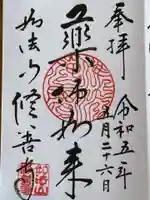 奉拝
令和五年
五月二十六日
薬師如来
如法山